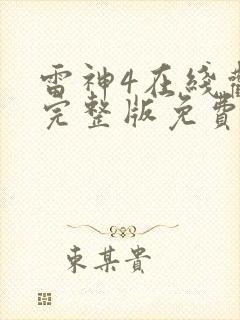 雷神4在綫觀
完整版免費
東某貴